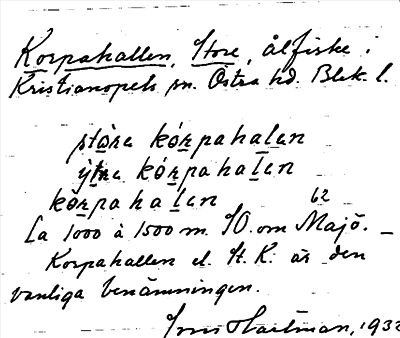 Korpahallen, Store, ålfiske i
Kristianopels sn. Östra hd. Blek. l.
stòra kórpahalan
ýtra kórpahalan
kòrpahalan
62
Ca 1000 à 1500 m. SO. om Majö. –
Korpahallen el. St. K. är den
vanliga benämningen.
Hartman, 1932